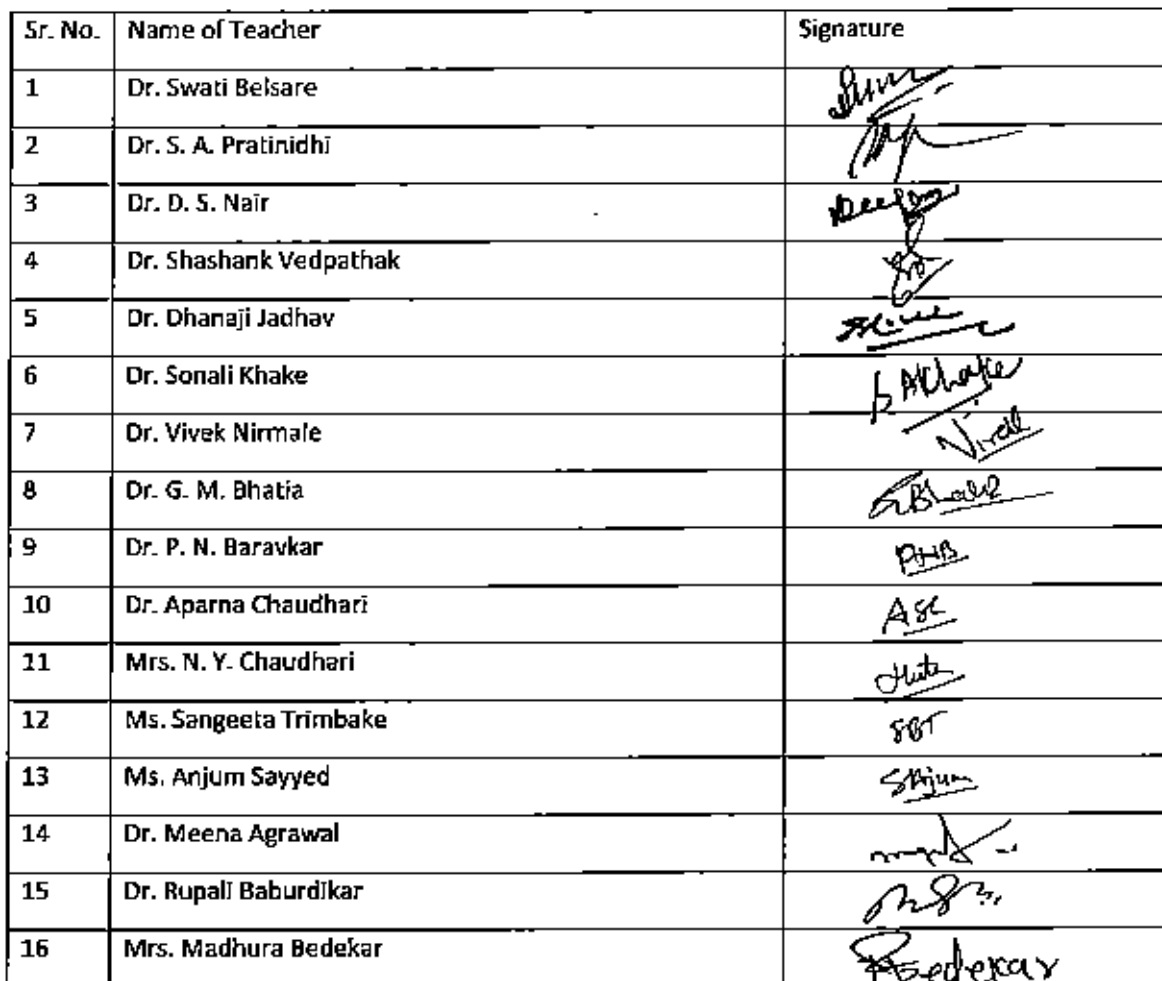 Sr. No. Name of Teacher Signature
1 Dr. Swati Belsare
2 Dr. S. A. Pratinidhi
3 Dr. D. S. Nair
4 Dr. Shashank Vedpathak
5 Dr. Dhanaji Jadhav
6 Dr. Sonali Khake SAKhake
7 Dr. Vivek Nirmale
8 Dr. G. M. Bhatia
9 Dr. P. N. Baravkar PNB
10 Dr. Aparna Chaudhari ASC
11 Mrs. N. Y. Chaudhari
12 Ms. Sangeeta Trimbake SBT
13 Ms. Anjum Sayyed SAnjum
14 Dr. Meena Agrawal
15 Dr. Rupali Baburdikar
16 Mrs. Madhura Bedekar Bedekar